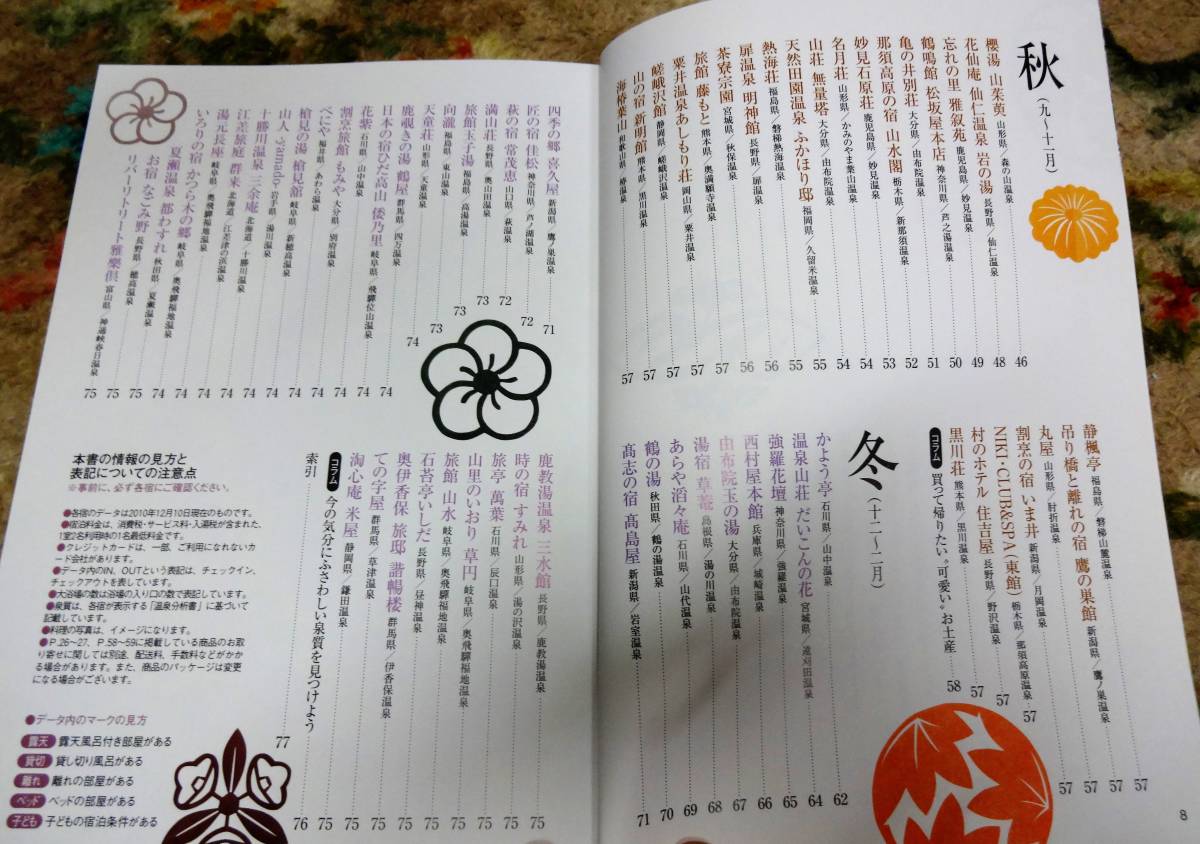 秋（九～十一月）
櫻湯 山茱萸 山形県／森の山温泉 46
花仙庵 仙仁温泉 岩の湯 長野県／仙仁温泉 48
忘れの里 雅叙苑 鹿児島県／妙見温泉 49
鶴鳴館 松坂屋本店 神奈川県／芦之湯温泉 50
亀の井別荘 大分県／由布院温泉 51
那須高原の宿 山水閣 栃木県／新那須温泉 52
妙見石原荘 鹿児島県／妙見温泉 53
名月荘 山形県／かみのやま葉山温泉 54
山荘 無量塔 大分県／由布院温泉 54
天然田園温泉 ふかほり邸 福岡県／久留米温泉 55
熱海荘 福島県／磐梯熱海温泉 55
扉温泉 明神館 長野県／扉温泉 56
茶寮宗園 宮城県／秋保温泉 56
旅館 藤もと 熊本県／奥満願寺温泉 57
粟井温泉あしもり荘 岡山県／粟井温泉 57
嵯峨沢館 静岡県／嵯峨沢温泉 57
山の宿 新明館 熊本県／黒川温泉 57
海椿葉山 和歌山県／椿温泉 57
静楓亭 福島県／磐梯山麓温泉 57
吊り橋と離れの宿 鷹の巣館 新潟県／鷹ノ巣温泉 57
丸屋 山形県／肘折温泉 57
割烹の宿 いま井 新潟県／月岡温泉 57
NIKI・CLUB&SPA（東館） 栃木県／那須高原温泉 57
村のホテル 住吉屋 長野県／野沢温泉 57
黒川荘 熊本県／黒川温泉 57
コラム 買って帰りたい“可愛い”お土産 58
冬（十二～二月）
かよう亭 石川県／山中温泉 62
温泉山荘 だいこんの花 宮城県／遠刈田温泉 64
強羅花壇 神奈川県／強羅温泉 65
西村屋本館 兵庫県／城崎温泉 66
由布院玉の湯 大分県／由布院温泉 67
湯宿 草菴 島根県／湯の川温泉 68
あらや滔々庵 石川県／山代温泉 69
鶴の湯 秋田県／鶴の湯温泉 70
髙志の宿 髙島屋 新潟県／岩室温泉 71
8
四季の郷 喜久屋 新潟県／鷹ノ巣温泉 71
匠の宿 佳松 神奈川県／芦ノ湖温泉 72
萩の宿 常茂恵 山口県／萩温泉 72
満山荘 長野県／奥山田温泉 73
旅館玉子湯 福島県／高湯温泉 73
向瀧 福島県／東山温泉 73
天童荘 山形県／天童温泉 74
鹿覗きの湯 鶴屋 群馬県／四万温泉 74
日本の宿ひだ高山 倭乃里 岐阜県／飛驒位山温泉 74
花紫 石川県／山中温泉 74
割烹旅館 もみや 大分県／別府温泉 74
べにや 福井県／あわら温泉 74
槍見の湯 槍見舘 岐阜県／新穂高温泉 74
山人-yamado- 岩手県／湯川温泉 74
十勝川温泉 三余庵 北海道／十勝川温泉 74
江差旅庭 群来 北海道／江差津の浜温泉 74
湯元長座 岐阜県／奥飛驒福地温泉 74
いろりの宿 かつら木の郷 岐阜県／奥飛驒福地温泉 74
夏瀬温泉 都わすれ 秋田県／夏瀬温泉 75
お宿 なごみ野 長野県／穂高温泉 75
リバーリトリート雅樂倶 富山県／神通峡春日温泉 75
鹿教湯温泉 三水館 長野県／鹿教湯温泉 75
時の宿 すみれ 山形県／湯の沢温泉 75
旅亭 萬葉 石川県／辰口温泉 75
山里のいおり 草円 岐阜県／奥飛驒福地温泉 75
旅館 山水 岐阜県／奥飛驒福地温泉 75
石苔亭いしだ 長野県／昼神温泉 75
奥伊香保 旅邸 諧暢楼 群馬県／伊香保温泉 75
ての字屋 群馬県／草津温泉 75
淘心庵 米屋 静岡県／鎌田温泉 75
コラム 今の気分にふさわしい泉質を見つけよう 76
索引 77
本書の情報の見方と
表記についての注意点
※事前に、必ず各宿にご確認ください。
●各宿のデータは2010年12月10日現在のものです。
●宿泊料金は、消費税・サービス料・入湯税が含まれた、
1室2名利用時の1名最低料金です。
●クレジットカードは、一部、ご利用になれないカ
ード会社があります。
●データ内のIN、OUTという表記は、チェックイン、
チェックアウトを表しています。
●大浴場の数は浴場の入り口の数で表記しています。
●泉質は、各宿が表示する「温泉分析書」に基づいて
記載しています。
●料理の写真は、イメージになります。
●P.26～27、P.58～59に掲載している商品のお取
り寄せに関しては別途、配送料、手数料などがかか
る場合があります。また、商品のパッケージは変更
になる場合がございます。
●データ内のマークの見方
露天 露天風呂付き部屋がある
貸切 貸し切り風呂がある
離れ 離れの部屋がある
ベッド ベッドの部屋がある
子ども 子どもの宿泊条件がある